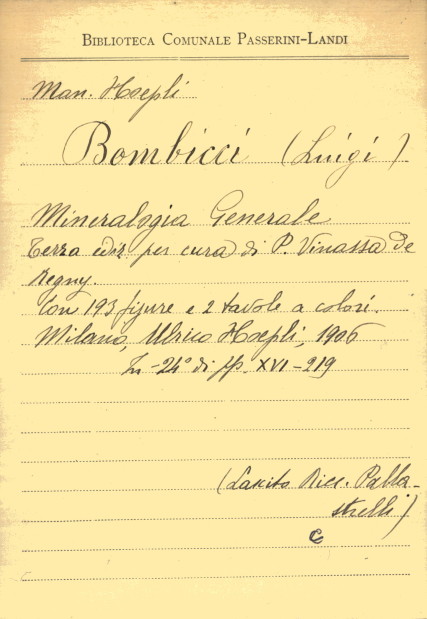 BIBLIOTECA COMUNALE PASSERINI-LANDI
Man. Hoepli
Bombicci (Luigi)
Mineralogia Generale
Terza ediz. per cura di P. Vinassa de
Regny.
Con 193 figure e 2 tavole a colori.
Milano, Ulrico Hoepli, 1906
In -24° di pp. XVI-219
(Lascito Ricc. Palla-
strelli)